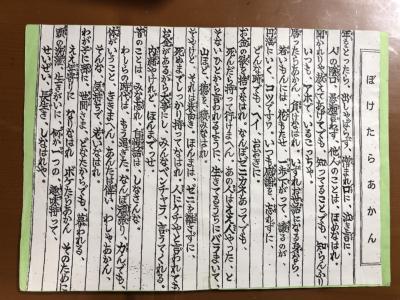 ぼけたらあかん
年をとったら 出しゃばらず、憎まれ口に、泣き言に
人の陰口 愚痴言わず、他人のことは ほめなはれ
聞かれりゃ教えてあげても、知ってることでも、知らんふり
いつでも アホで いることっちゃ
勝ったらあかん 負けなはれ、いずれお世話になる身なら、
若いもんには 花もたせ 一歩下がって、譲るのが、
円満に いく、コツですワ。いつも感謝を 忘れずに
どんな時でも、ヘイ、おおきに。
お金の欲を捨てなはれ、なんぼゼニカネあってでも、
死んだら持って行けまへん、あの人は ええ人やった、と
そない ひとから言われるように 生きてるうちにバラまいて、
山ほど 徳を 積みなはれ
そやけど、それは表向き、ほんまは、ゼニを離さずに、
死ぬまでしっかり持ってなはれ、人にケチやと言われても
お金があるから大事にし、みんなベンチャラ 言うてくれる。
内緒やけれど、ほんまでっせ。
昔のことは、みな忘れ、自慢話は、しなさんな、
わしらの時代は、もう過ぎた、なんぼ頑張り、力んでも、
体がいうこと ききまへん、あんたは偉い、わしゃあかん、
そんな 気持ちで おりなはれ
わが子に孫に 世間さま、どなたからでも、慕われる、
ええ年寄りに なりなはれ、ボケたらあかん そのために
頭の洗濯、生きがいに、何か一つの 趣味持って、
せいぜい、長生き しなはれや。